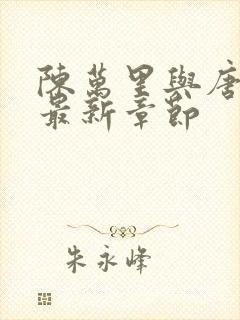 陳萬里與唐
最新章節
朱永峰